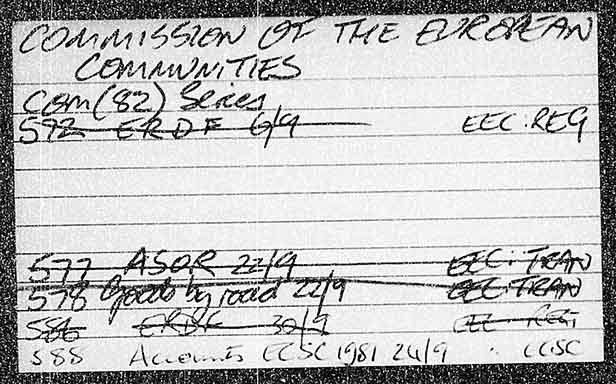 COMMISSION OF THE EUROPEAN
COMMUNITIES
COM(82) Series
572 ERDF 6/9 EEC:REG
577 ASOR 22/9 EEC:TRAN
578 Goods by road 22/9 EEC:TRAN
586 ERDF 30/9 EEC REG
588 Accounts ECSC 1981 24/9 ECSC